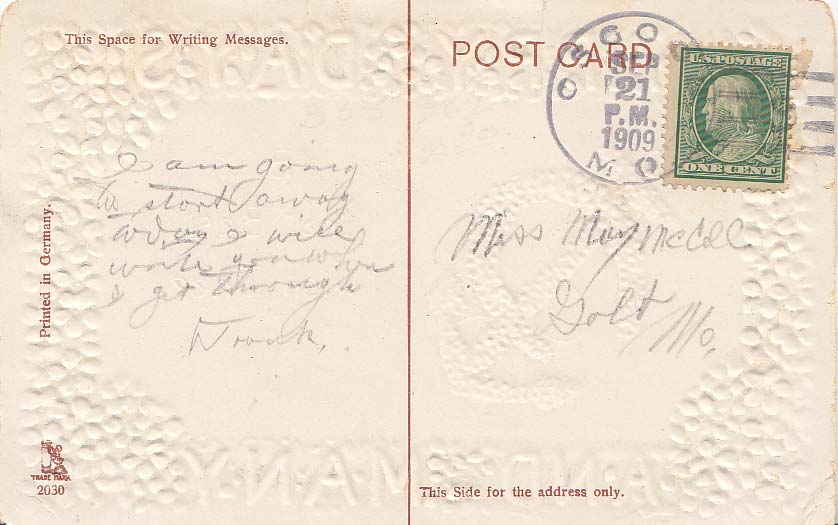 This Space for Writing Messages.
POST CARD
OSGO
SEP
21
P.M.
1909
MO
U.S. POSTAGE
ONE CENT
I am going
to start away
today I will
write you when
I get through
Frank.
Miss May McCall
Galt
Mo.
Printed in Germany.
TRADE MARK
2030
This Side for the address only.